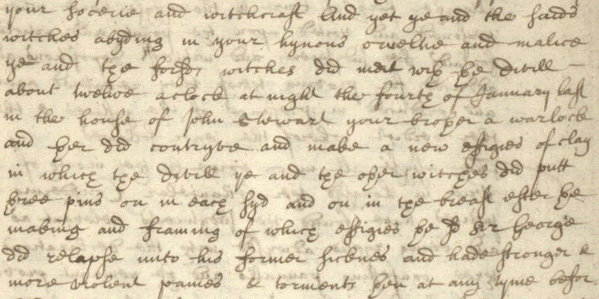 your socerie and witchcraft And yet ye and the saids
witches abyding in your hynous crueltie and malice
ye and the forsds witches did meit wiþ þe devill
about twelve aclock at night the fourtþ of January last
in the house of John Stewart your broþer a warlock
and þer did contryve and make a new effigies of clay
in whicþ tþe devill ye and tþe oþer witches did putt
þree pins on in each syd and on in tþe breast efter þe
making and framing of whicþ effigies þe sd Sir George
did relapse unto his former sicknes and hade stronger &
more violent paines & torments þen at any tyme befor